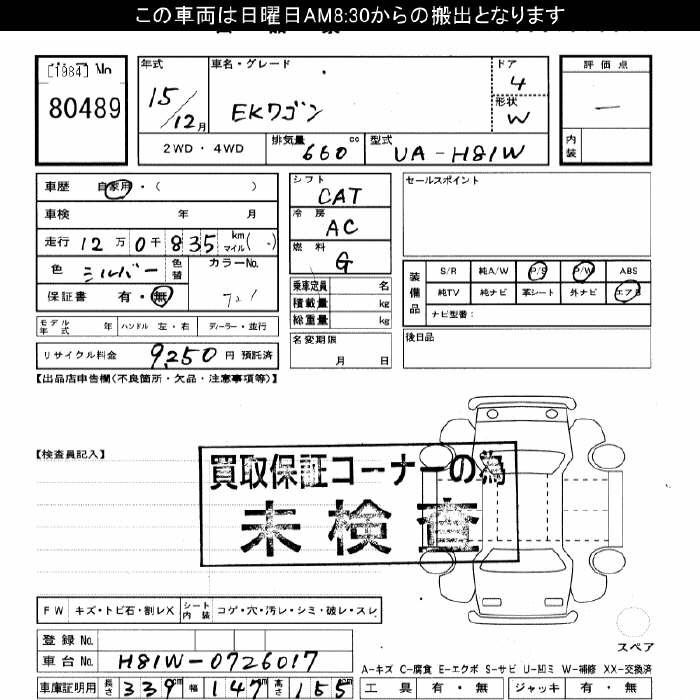 この車両は日曜日AM8:30からの搬出となります
[1984] No
80489
年式 車名・グレード ドア 評価点
15/12月 EKワゴン 4
形状 W
2WD・4WD 排気量 660 cc 型式 UA-H81W
内装
車歴 自家用・( )
車検 年 月
走行 12万0千835 km マイル( )
色 シルバー 色替 カラーNo.
保証書 有・無
モデル年式 年 ハンドル 左・右 ディーラー・並行
リサイクル料金 9,250 円 預託済
シフト CAT
冷房 AC
燃料 G
乗車定員 名
積載量 kg
総重量 kg
名変期限 月 日
セールスポイント
装備品 S/R 純A/W P/S P/W ABS
純TV 純ナビ 革シート 外ナビ エアB
ナビ型番:
後日品
【出品店申告欄(不良箇所・欠品・注意事項等)】
【検査員記入】
買取保証コーナーの為
未検査
FW キズ・トビ石・割レX シート内装 コゲ・穴・汚レ・シミ・破レ・スレ
登録No.
車台No. H81W-0726017
車庫証明用 長さ 339cm 幅 147cm 高さ 155cm
スペア
A-キズ C-腐食 E-エクボ S-サビ U-凹ミ W-補修 XX-交換済
工具 有・無 ジャッキ 有・無